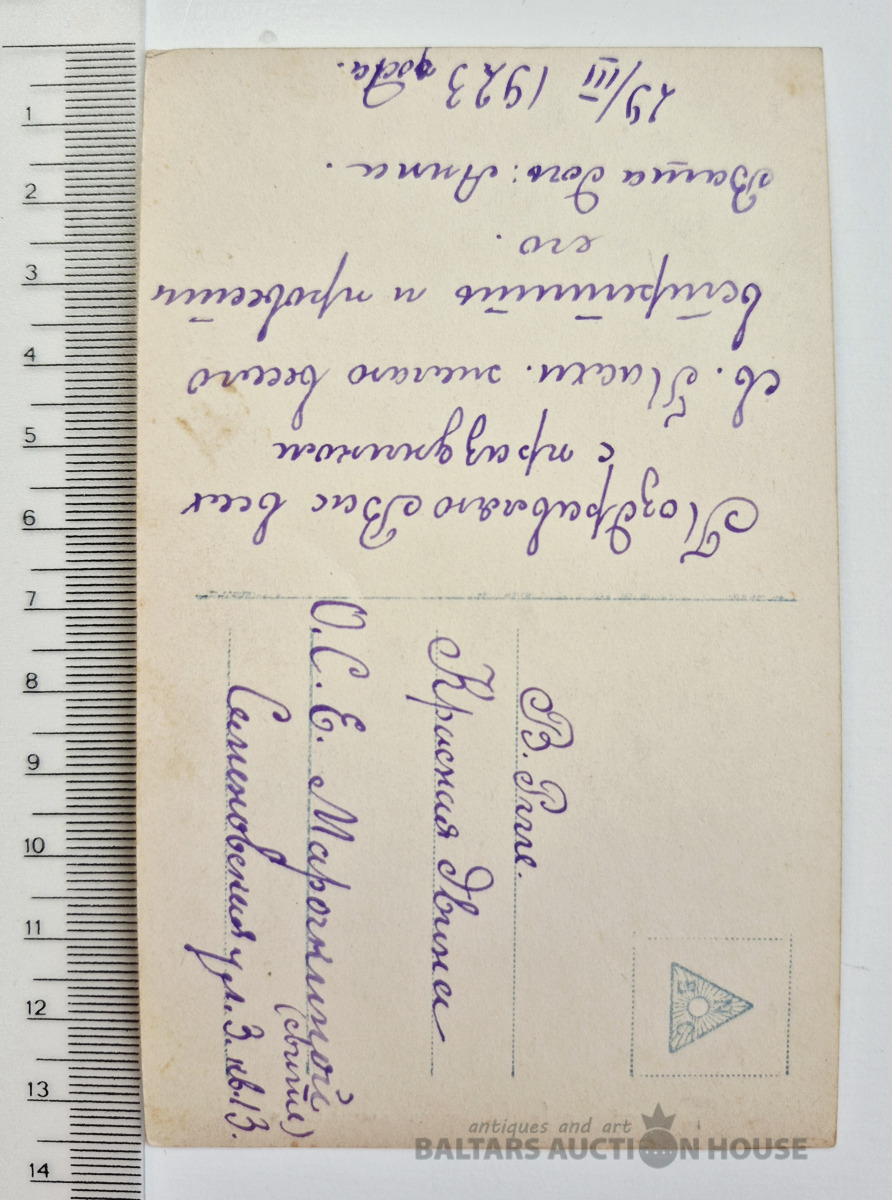 Поздравляю Вас всех
с праздником
св. Пасхи. желаю весело
встретить и провести
его.
Ваша дочь: Анна.
29/III 1923 года.
В. Риге.
Красная Двина
О. С. Е. Марочкиной
Семеновская ул. 3. кв. 13.
1
2
3
4
5
6
7
8
9
10
11
12
13
14
antiques and art
BALTARS AUCTION HOUSE